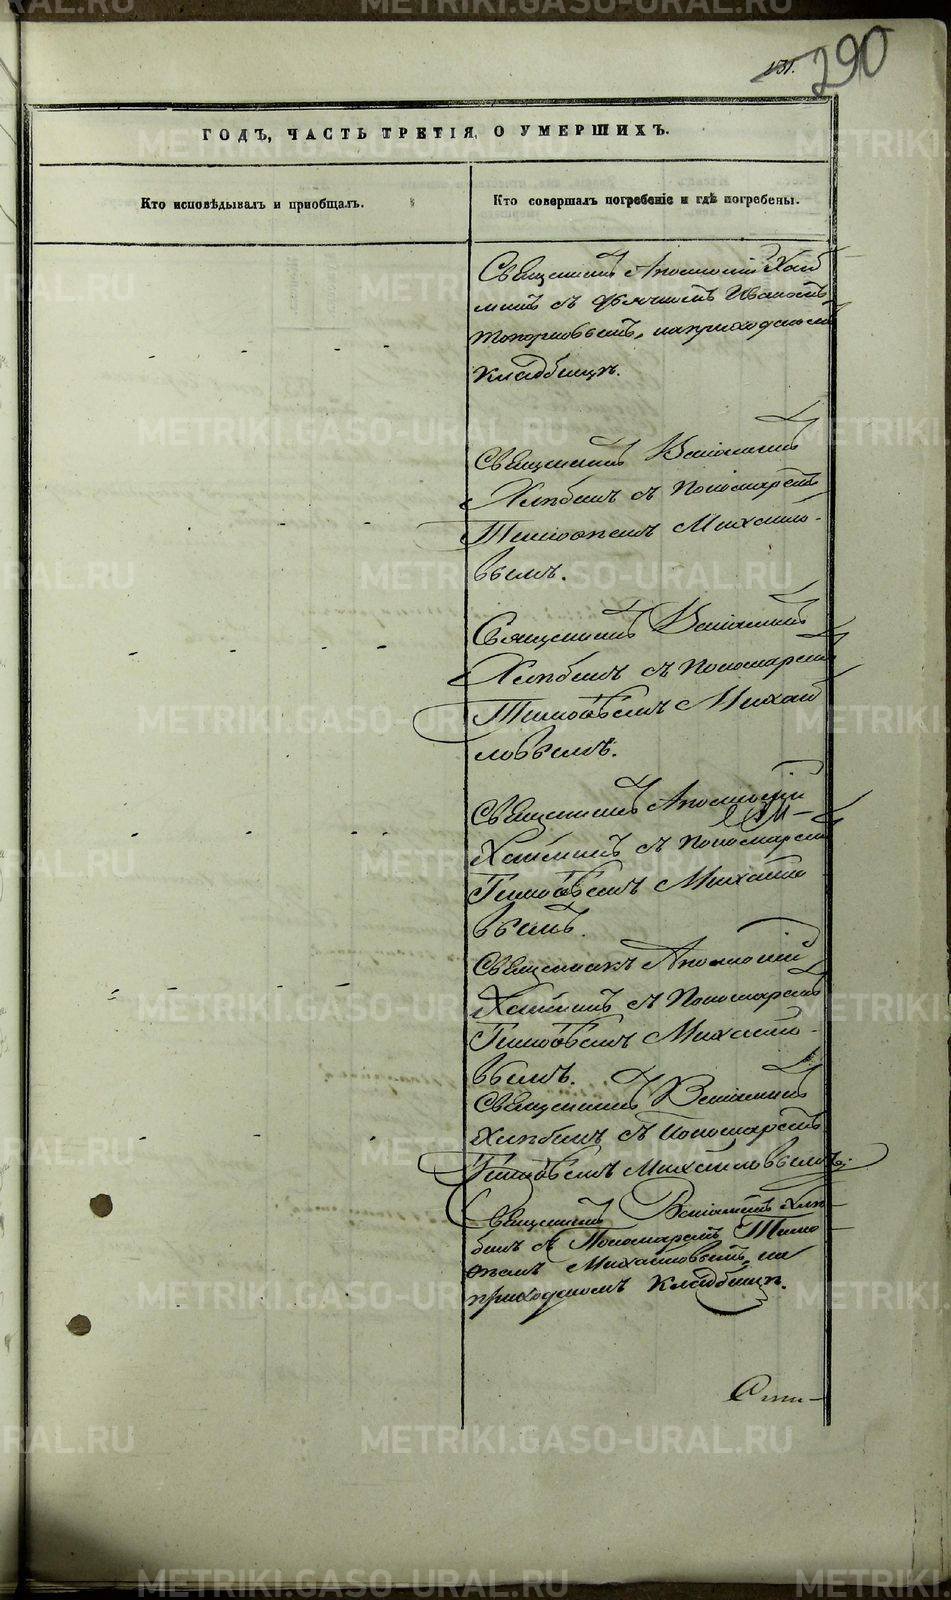 131.
290
ГОДЪ, ЧАСТЬ ТРЕТІЯ, О УМЕРШИХЪ.
Кто исповѣдывалъ и пріобщалъ.
Кто совершалъ погребеніе и гдѣ погребены.
Священникъ
съ Дьячкомъ Иваномъ
Топорковымъ, на приходскомъ
Кладбищѣ.
Священникъ Веніаминъ
Хлѣбинъ съ Пономаремъ
Тимофѣемъ Михайло-
вымъ.
Священникъ Веніаминъ
Хлѣбинъ съ Пономаремъ
Тимофѣемъ Михай
ловымъ.
Священникъ
съ Пономаремъ
Тимофѣемъ Михайло
вымъ.
Священникъ
съ Пономаремъ
Тимофѣемъ Михайло-
вымъ.
Священникъ Веніаминъ
Хлѣбинъ съ Пономаремъ
Тимофѣемъ Михайловымъ.
Священникъ Веніаминъ Хлѣ-
бинъ съ Пономаремъ Тимо
ѳѣемъ Михайловымъ, на
приходскомъ Кладбищѣ.
METRIKI.GASO-URAL.RU